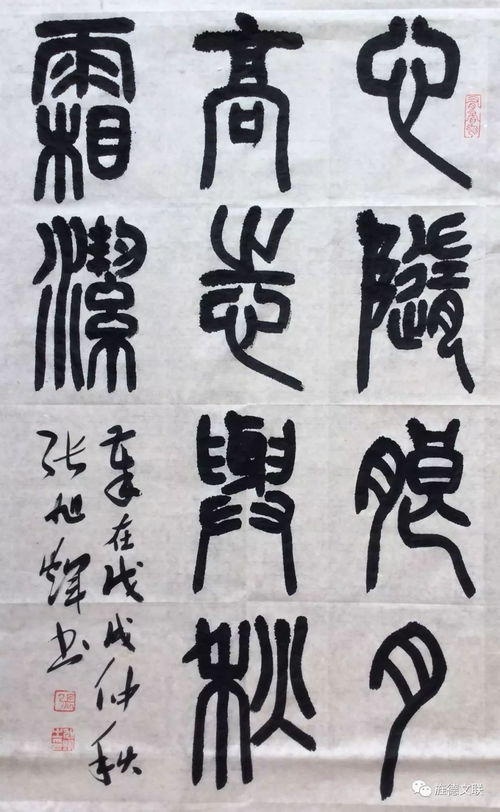 心隨朗月
高志與秋
霜潔
岁在戊戌仲秋
张旭辉书
旌德文联